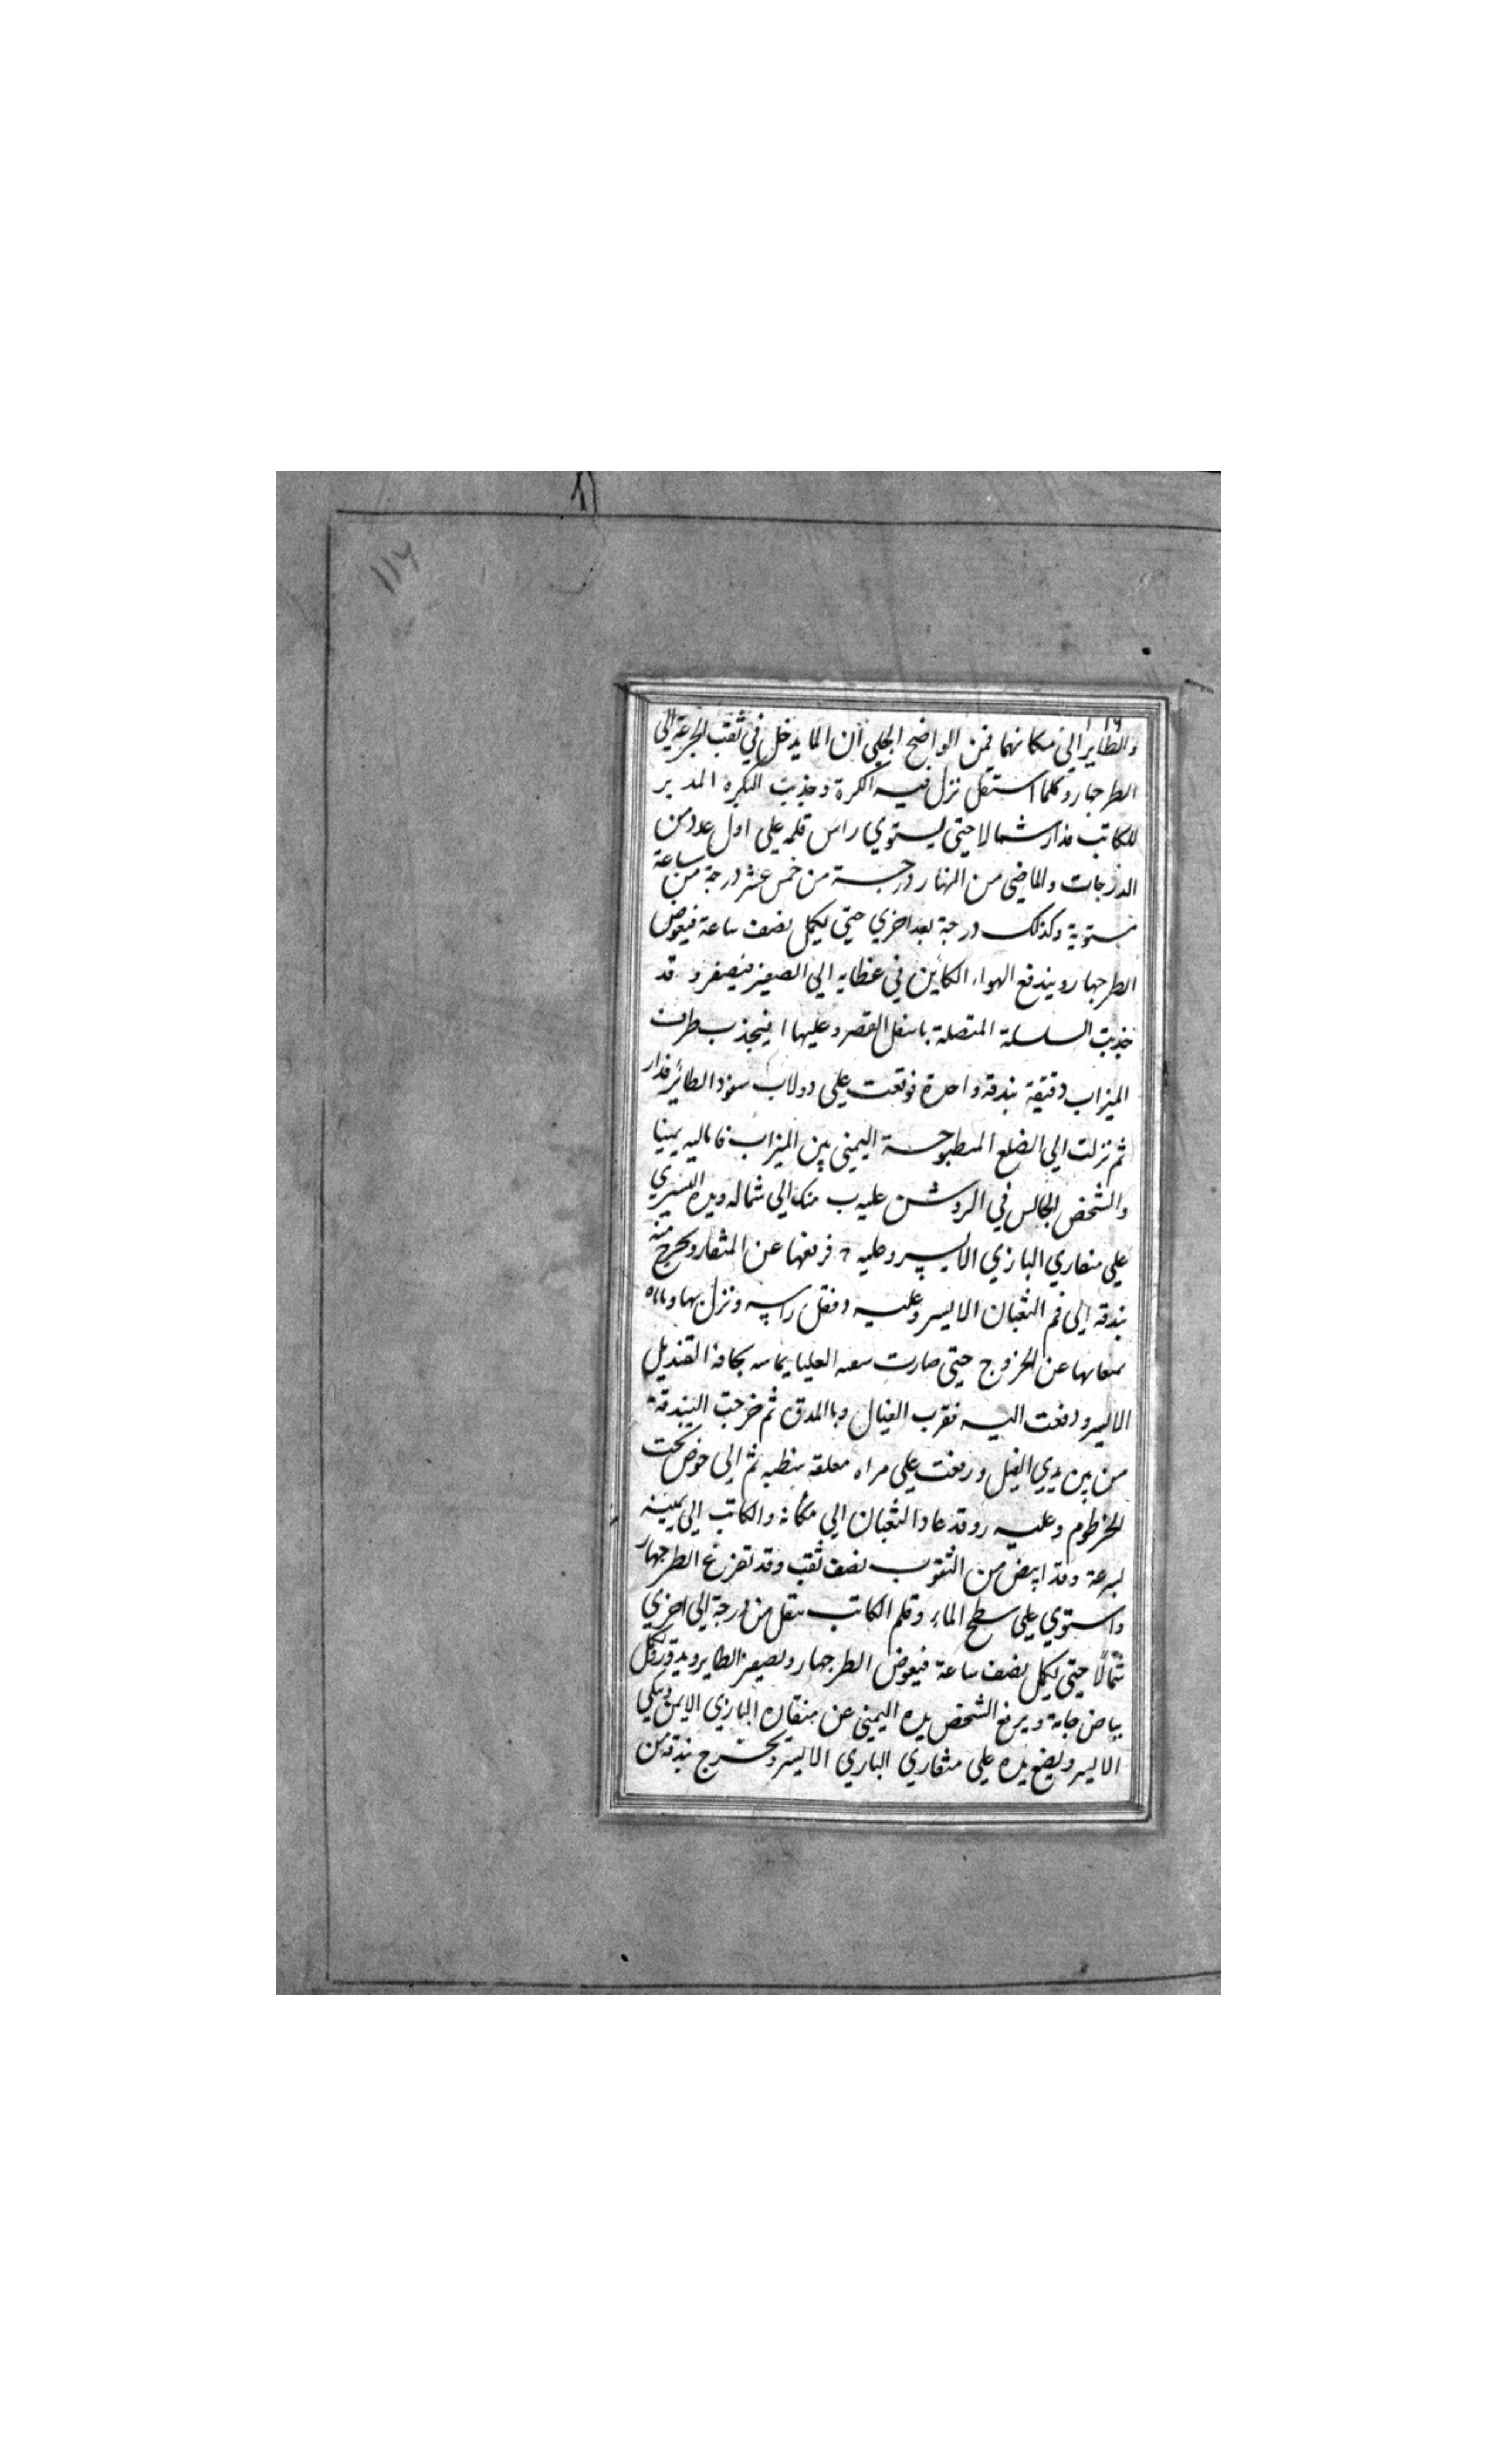 ١١٧
١١٦
والطاير الي مكانهما فمن الواضح الجلي ان الما يدخل في ثقب الجزعة الي
الطرجهار وكلما استقل نزل فيه الكرة وجذبت البكره المدير
للكاتب فدار شمالا حتي يستوي راس قلمه علي اول عدد من
الدرجات والماضي من النهار درجة من خمس عشر درجة من ساعة
مستوية وكذلك درجة بعد اخري حتي يكمل نصف ساعة فيغوص
الطرجهار ويندفع الهواء الكاين في غطايه الي الصفير فيصفر وقد
جذبت السلسلة المتصلة باسفل القصر وعليها ا فينجذب طرف
الميزاب دقيقة بندقة واحدة فوقعت علي دولاب سفود الطائر فدار
ثم نزلت الي الضلع المطبوحة اليمني بين الميزاب يمينا
والشخص الجالس في الروشن عليه ب منك الي شماله ويده اليسري
علي منقاري البازي الايسر وعليه فرفعها عن المنقار وخرج منه
بندقة الي فم الثعبان الايسر وعليه فثقل راسه ونزل بها
عن الخروج حتي صارت العليا يماسه بحافة القنديل
الايسر ودفعت اليه فضرب الفيال بالمدق ثم خرجت البندقة
من بين يدي الفيل ورفعت علي مراه معلقة ثم الي حوض تحت
الخرطوم وعليه ر وقد عاد الثعبان الي مكانه والكاتب الي يمينه
بسرعة وقد ابيض من الثقوب نصف ثقب وقد تفرغ الطرجهار
واستوي علي سطح الماء وقلم الكاتب ينتقل من درجة الي اخري
شمالا حتي يكمل نصف ساعة فيغوص الطرجهار ويصفر الطاير ويدور ويكمل
بياض جامة ويرفع الشخص يده اليمني عن منقار البازي الايمن ويتكي
الايسر ويضع يده علي منقاري البازي الايسر وتخرج بندقة من